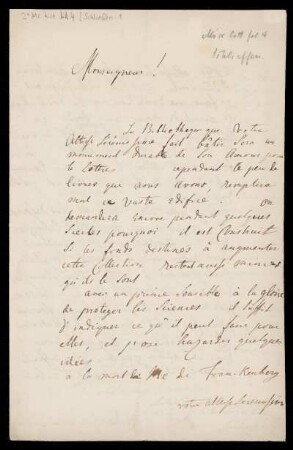 Monseigneur !
La Bibliotheque que Votre
Altesse Serenissime fait bâtir sera un
monument durable de son Amour pour
le Lettres cependant le peu de
livres que nous avons, remplira
mal ce vaste edifice. On
demandera encore pendant quelques
siecles pourquoi il est construit
si les fonds destinés à augmenter
cette Collection restent aussi
qu'ils le sont
avec un prince sensible à la gloire
de proteger les Sciences il suffit
d'indiquer ce qu'il peut faire pour
elles, et j'ose hazarder quelques
idées
à la mort de Mr de Frankenberg
votre altesse Serenissime